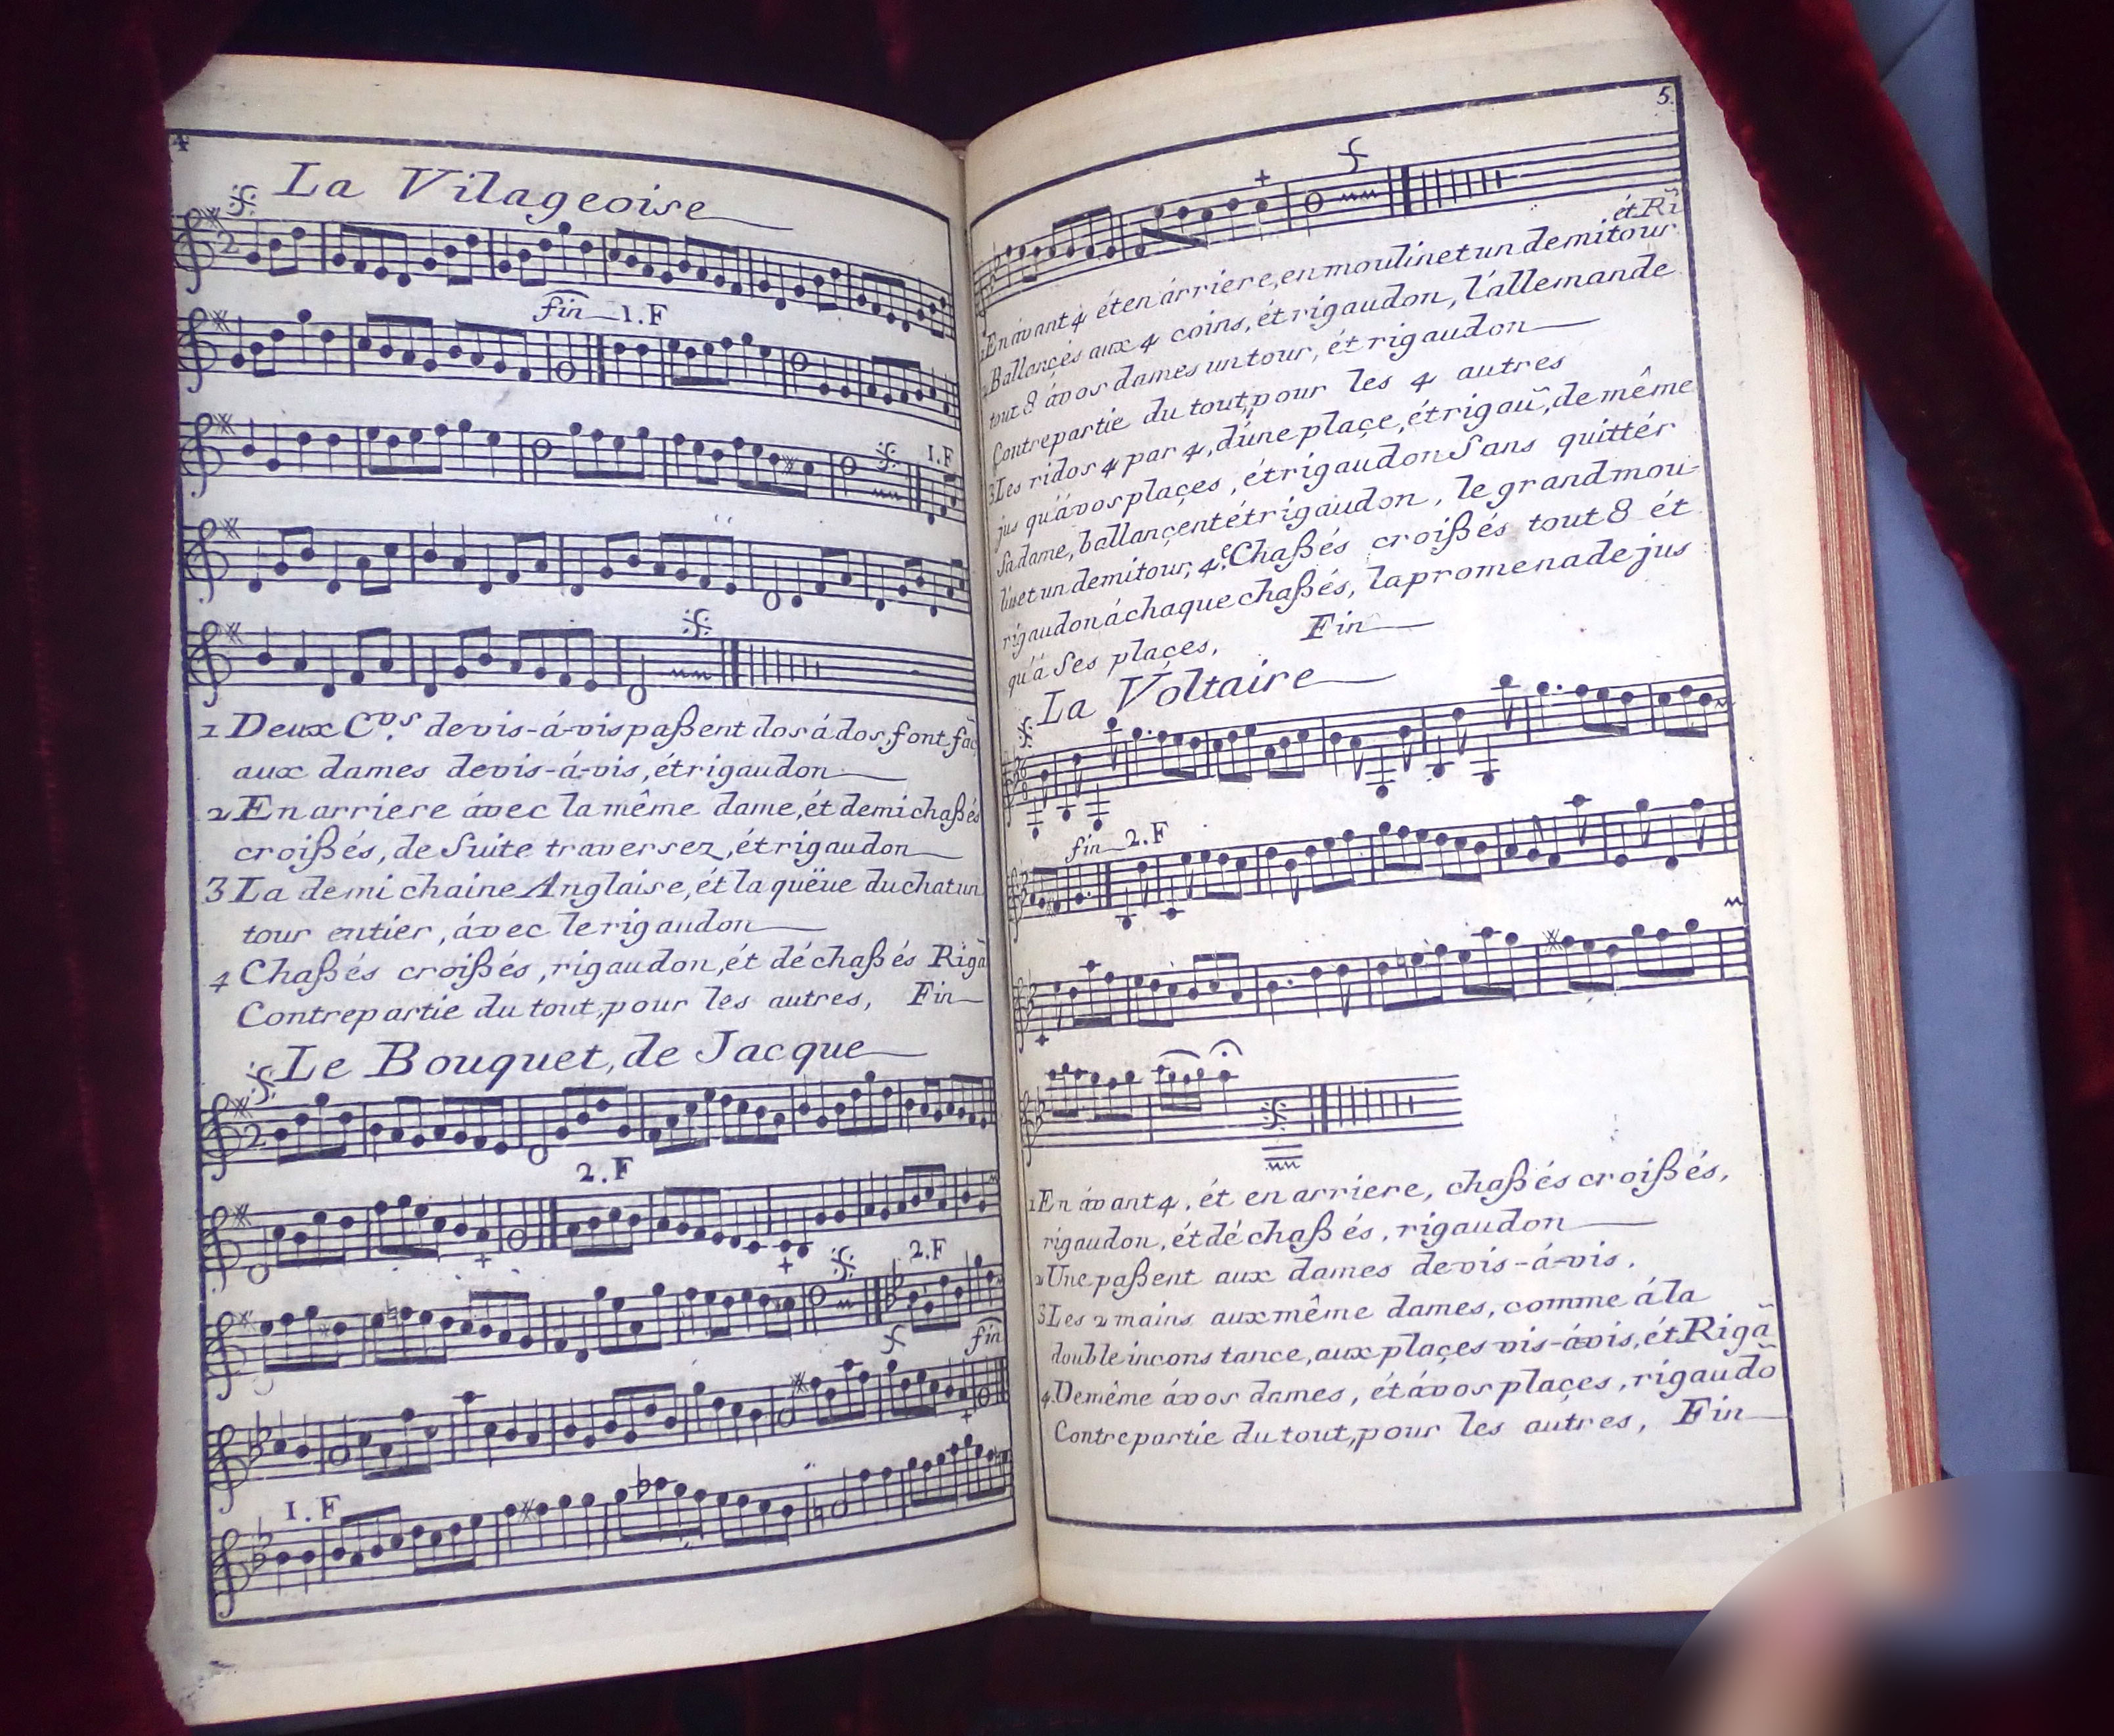 4
La Vilageoise
2
fin 1.F
1.F
1 Deux C.ᵛˢ de vis-á-vis paßent dos á dos, font fac̃
aux dames de vis-á-vis, ét rigaudon
2 En arriere ávec la même dame, ét demi chaßés
croißés, de Suite traversez, ét rigaudon
3 La demi chaine Anglaise, ét la quëue du chat un
tour entier, ávec le rigaudon
4 Chaßés croißés, rigaudon, ét déchaßés Rigã
Contrepartie du tout, pour les autres, Fin
Le Bouquet, de Jacque
2
2.F
2.F
fin
1.F
5.
ét Rĩ
1 En ávant 4 ét en árriere, en moulinet un demi tour
2 Ballançés aux 4 coins, ét rigaudon, l'állemande
tout 8 ávos dames un tour, ét rigaudon
Contrepartie du tout, pour les 4 autres
3 Les ridos 4 par 4, d'úne plaçe, ét rigaũ, de même
jus qu'á vos plaçes, ét rigaudon Sans quittér
Sa dame, ballançent ét rigaudon, le grand mou-
linet un demi tour, 4.ᵉ Chaßés croißés tout 8 ét
rigaudon á chaque chaßés, la promenade jus
qu'á Ses plaçes, Fin
La Voltaire
fin 2.F
1 En ávant 4, ét en arriere, chaßés croißés,
rigaudon, ét déchaßés, rigaudon
2 Une paßent aux dames de vis-á-vis.
3 Les 2 mains aux même dames, comme á la
double incons tance, aux plaçes vis-ávis, ét Rigã
4. De même ávos dames, ét ávos plaçes, rigaudõ
Contrepartie du tout, pour les autres, Fin